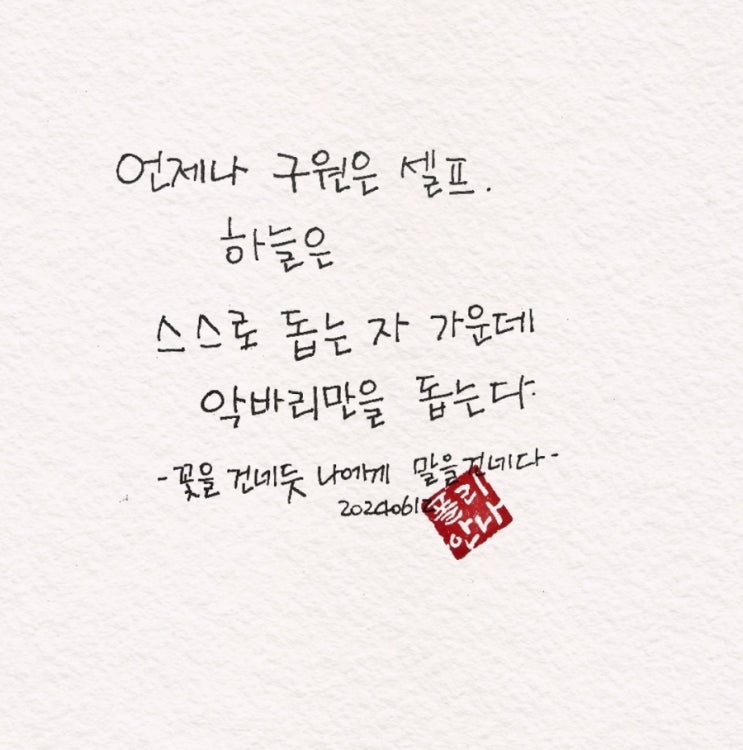 언제나 구원은 셀프.
하늘은
스스로 돕는 자 가운데
악바리만을 돕는다.
-꽃을 건네듯 나에게 말을건네다-
폴리
안나